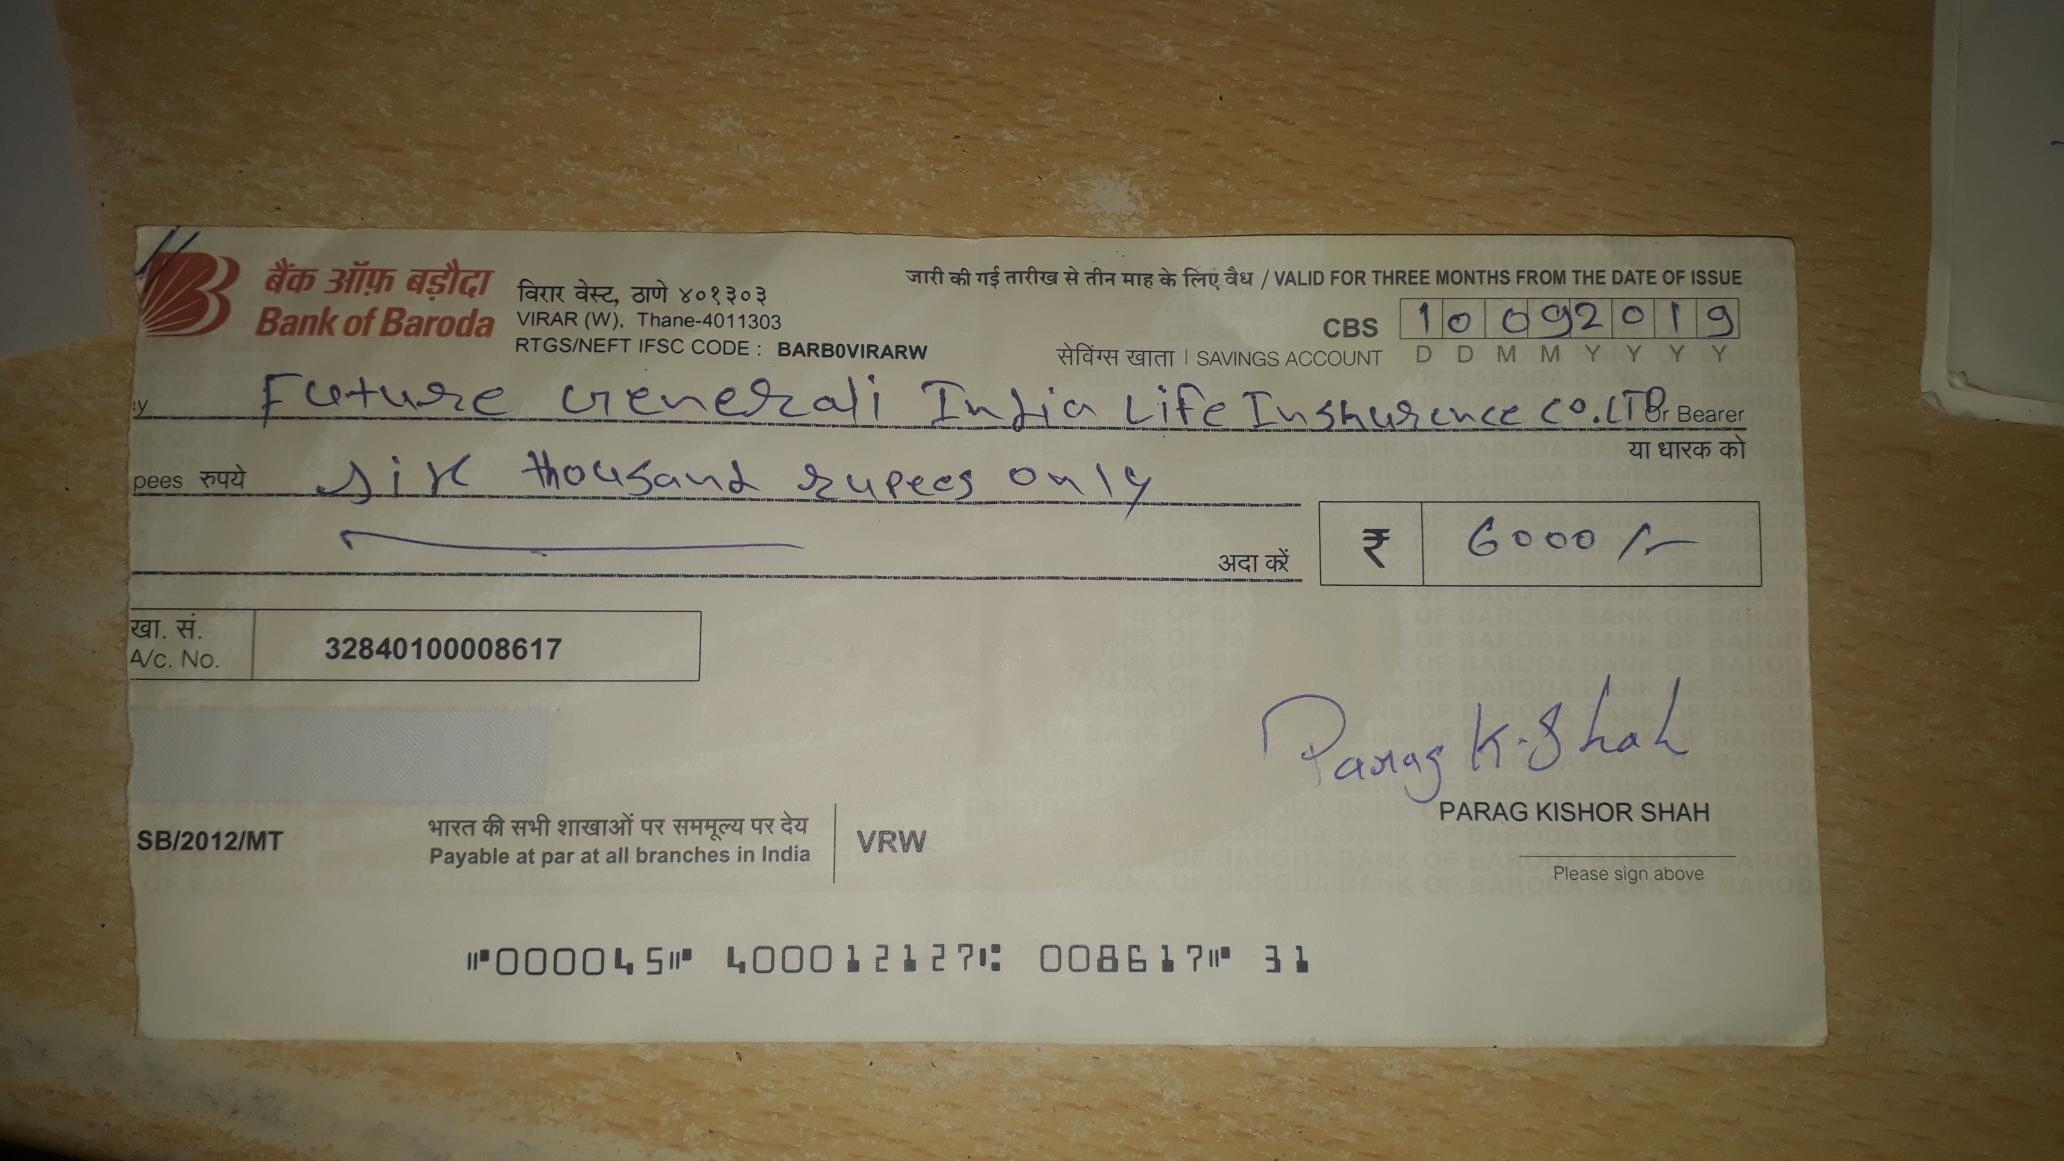 बैंक ऑफ़ बड़ौदा
Bank of Baroda
विरार वेस्ट, ठाणे ४०१३०३
VIRAR (W), Thane-4011303
RTGS/NEFT IFSC CODE : BARB0VIRARW
जारी की गई तारीख से तीन माह के लिए वैध / VALID FOR THREE MONTHS FROM THE DATE OF ISSUE
CBS 10092019
सेविंग्स खाता / SAVINGS ACCOUNT D D M M Y Y Y Y
y Future Generali India Life Inshurence CO.LTD Or Bearer
या धारक को
pees रुपये six thousand rupees only
अदा करें ₹ 6000/-
खा. सं.
A/c. No. 32840100008617
Parag K. Shah
PARAG KISHOR SHAH
Please sign above
SB/2012/MT
भारत की सभी शाखाओं पर सममूल्य पर देय
Payable at par at all branches in India
VRW
⑈000045⑈ 400012127⑆ 008617⑈ 31